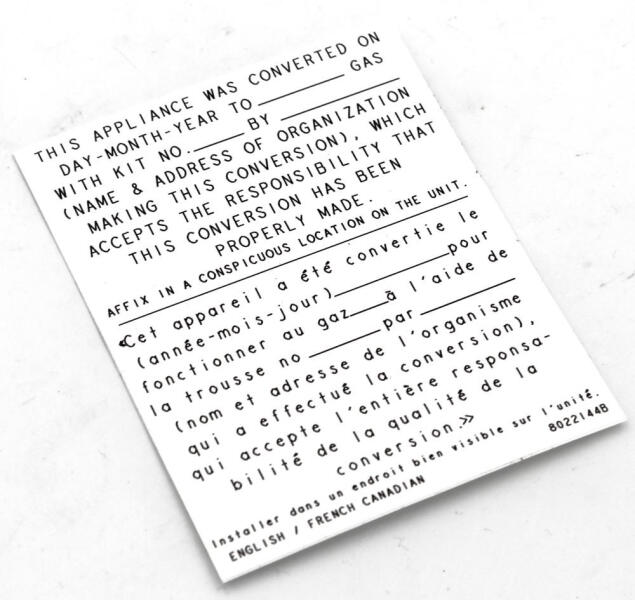 THIS APPLIANCE WAS CONVERTED ON
DAY-MONTH-YEAR TO________ GAS
WITH KIT NO._____ BY __________
(NAME & ADDRESS OF ORGANIZATION
MAKING THIS CONVERSION), WHICH
ACCEPTS THE RESPONSIBILITY THAT
THIS CONVERSION HAS BEEN
PROPERLY MADE.
AFFIX IN A CONSPICUOUS LOCATION ON THE UNIT.
«Cet appareil a été convertie le
(année-mois-jour)__________pour
fonctionner au gaz___à l'aide de
la trousse no ______par________
(nom et adresse de l'organisme
qui a effectué la conversion),
qui accepte l'entière responsa-
bilité de la qualité de la
conversion.»
Installer dans un endroit bien visible sur l'unité.
ENGLISH / FRENCH CANADIAN
8022144B